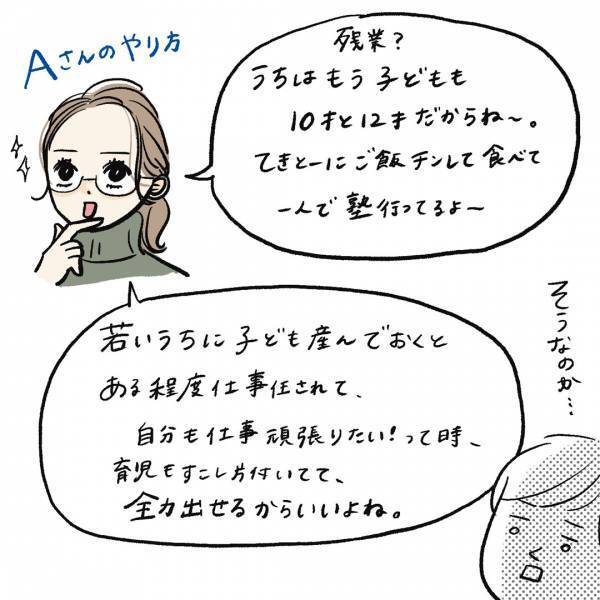 Aさんのやり方
残業?
うちはもう子どもも
10才と12才だからね〜。
てきとーにご飯チンして食べて
一人で塾行ってるよ〜
若いうちに子ども産んでおくと
ある程度仕事任されて、
自分も仕事頑張りたい!って時、
育児もすこし片付いてて、
全力出せるからいいよね。
そうなのか…